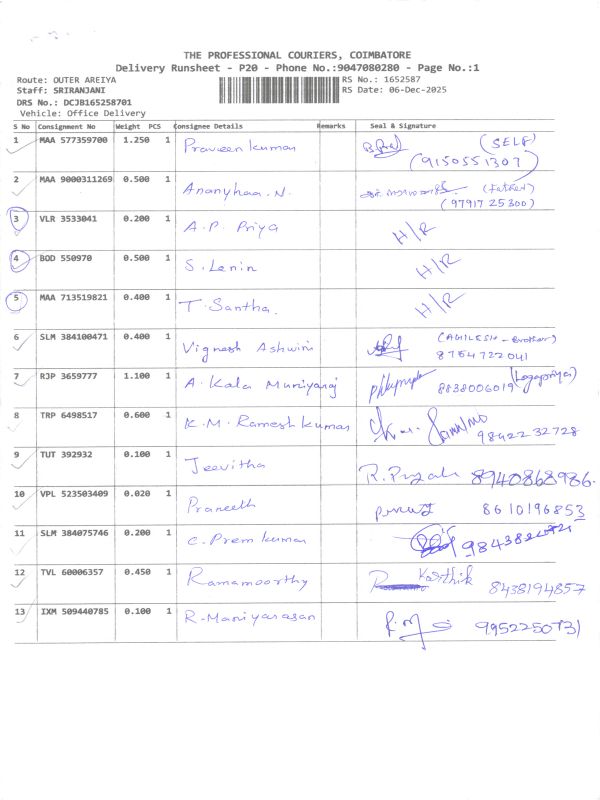 THE PROFESSIONAL COURIERS, COIMBATORE
Delivery Runsheet - P20 - Phone No.:9047080280 - Page No.:1
Route: OUTER AREIYA RS No.: 1652587
Staff: SRIRANJANI RS Date: 06-Dec-2025
DRS No.: DCJB165258701
Vehicle: Office Delivery
S No Consignment No Weight PCS Consignee Details Remarks Seal & Signature
1 MAA 577359700 1.250 1 Praveen kumar (SELF)
(9150551307)
2 MAA 9000311269 0.500 1 Ananyhaa.N. (father)
(97917 25300)
3 VLR 3533041 0.200 1 A.P. Priya H/R
4 BOD 550970 0.500 1 S.Lenin H/R
5 MAA 713519821 0.400 1 T.Santha. H/R
6 SLM 384100471 0.400 1 Vignesh Ashwin (AGILESH - Brother)
8754722041
7 RJP 3659777 1.100 1 A. Kala Muniyaraj 8838006019
8 TRP 6498517 0.600 1 K.M. Ramesh kumar 98422 32728
9 TUT 392932 0.100 1 Jeevitha R. 8940868986.
10 VPL 523503409 0.020 1 Praneeth 8610196853
11 SLM 384075746 0.200 1 C. Prem kumar
12 TVL 60006357 0.450 1 Ramamoorthy Karthik 8438194857
13 IXM 509440785 0.100 1 R.Maniyarasan 9952250731